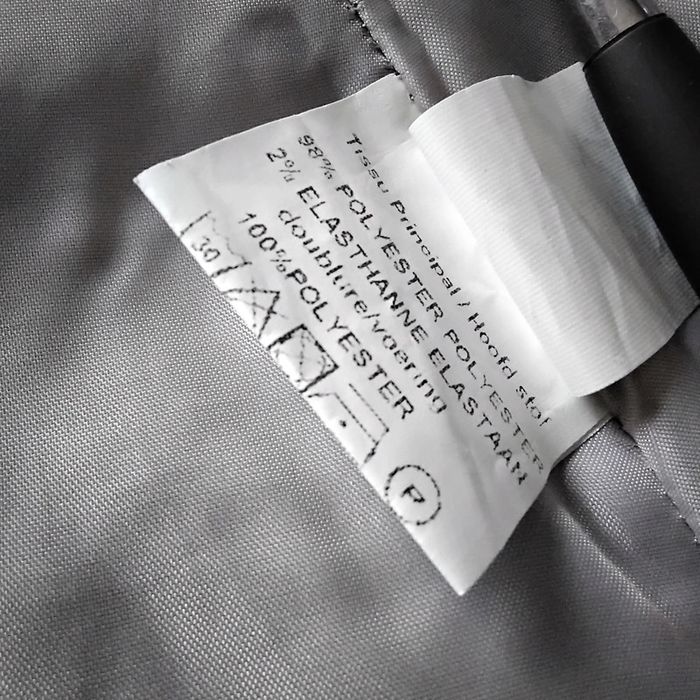 Tissu Principal / Hoofd stof
98% POLYESTER POLYESTER
2% ELASTHANNE ELASTAAN
doublure/voering
100%POLYESTER
30
P